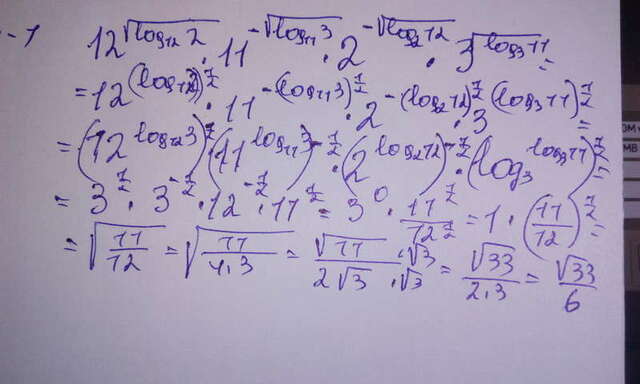 -1
12^{\sqrt{log_{12} 2}} · 11^{-\sqrt{log_{11} 3}} · 2^{-\sqrt{log_2 12}} · 3^{\sqrt{log_3 11}} =
= 12^{(log_{12} 3)^{1/2}} · 11^{-(log_{11} 3)^{1/2}} · 2^{-(log_2 12)^{1/2}} · 3^{(log_3 11)^{1/2}} =
= (12^{log_{12} 3})^{1/2} (11^{log_{11} 3})^{-1/2} · (2^{log_2 12})^{-1/2} · (log_3^{log_3 11})^{1/2} =
= 3^{1/2} · 3^{-1/2} · 12^{-1/2} · 11^{1/2} = 3^0 · \frac{11^{1/2}}{12^{1/2}} = 1 · (\frac{11}{12})^{1/2} =
= \sqrt{\frac{11}{12}} = \sqrt{\frac{11}{4·3}} = \frac{\sqrt{11} ·\sqrt{3}}{2\sqrt{3} ·\sqrt{3}} = \frac{\sqrt{33}}{2·3} = \frac{\sqrt{33}}{6}